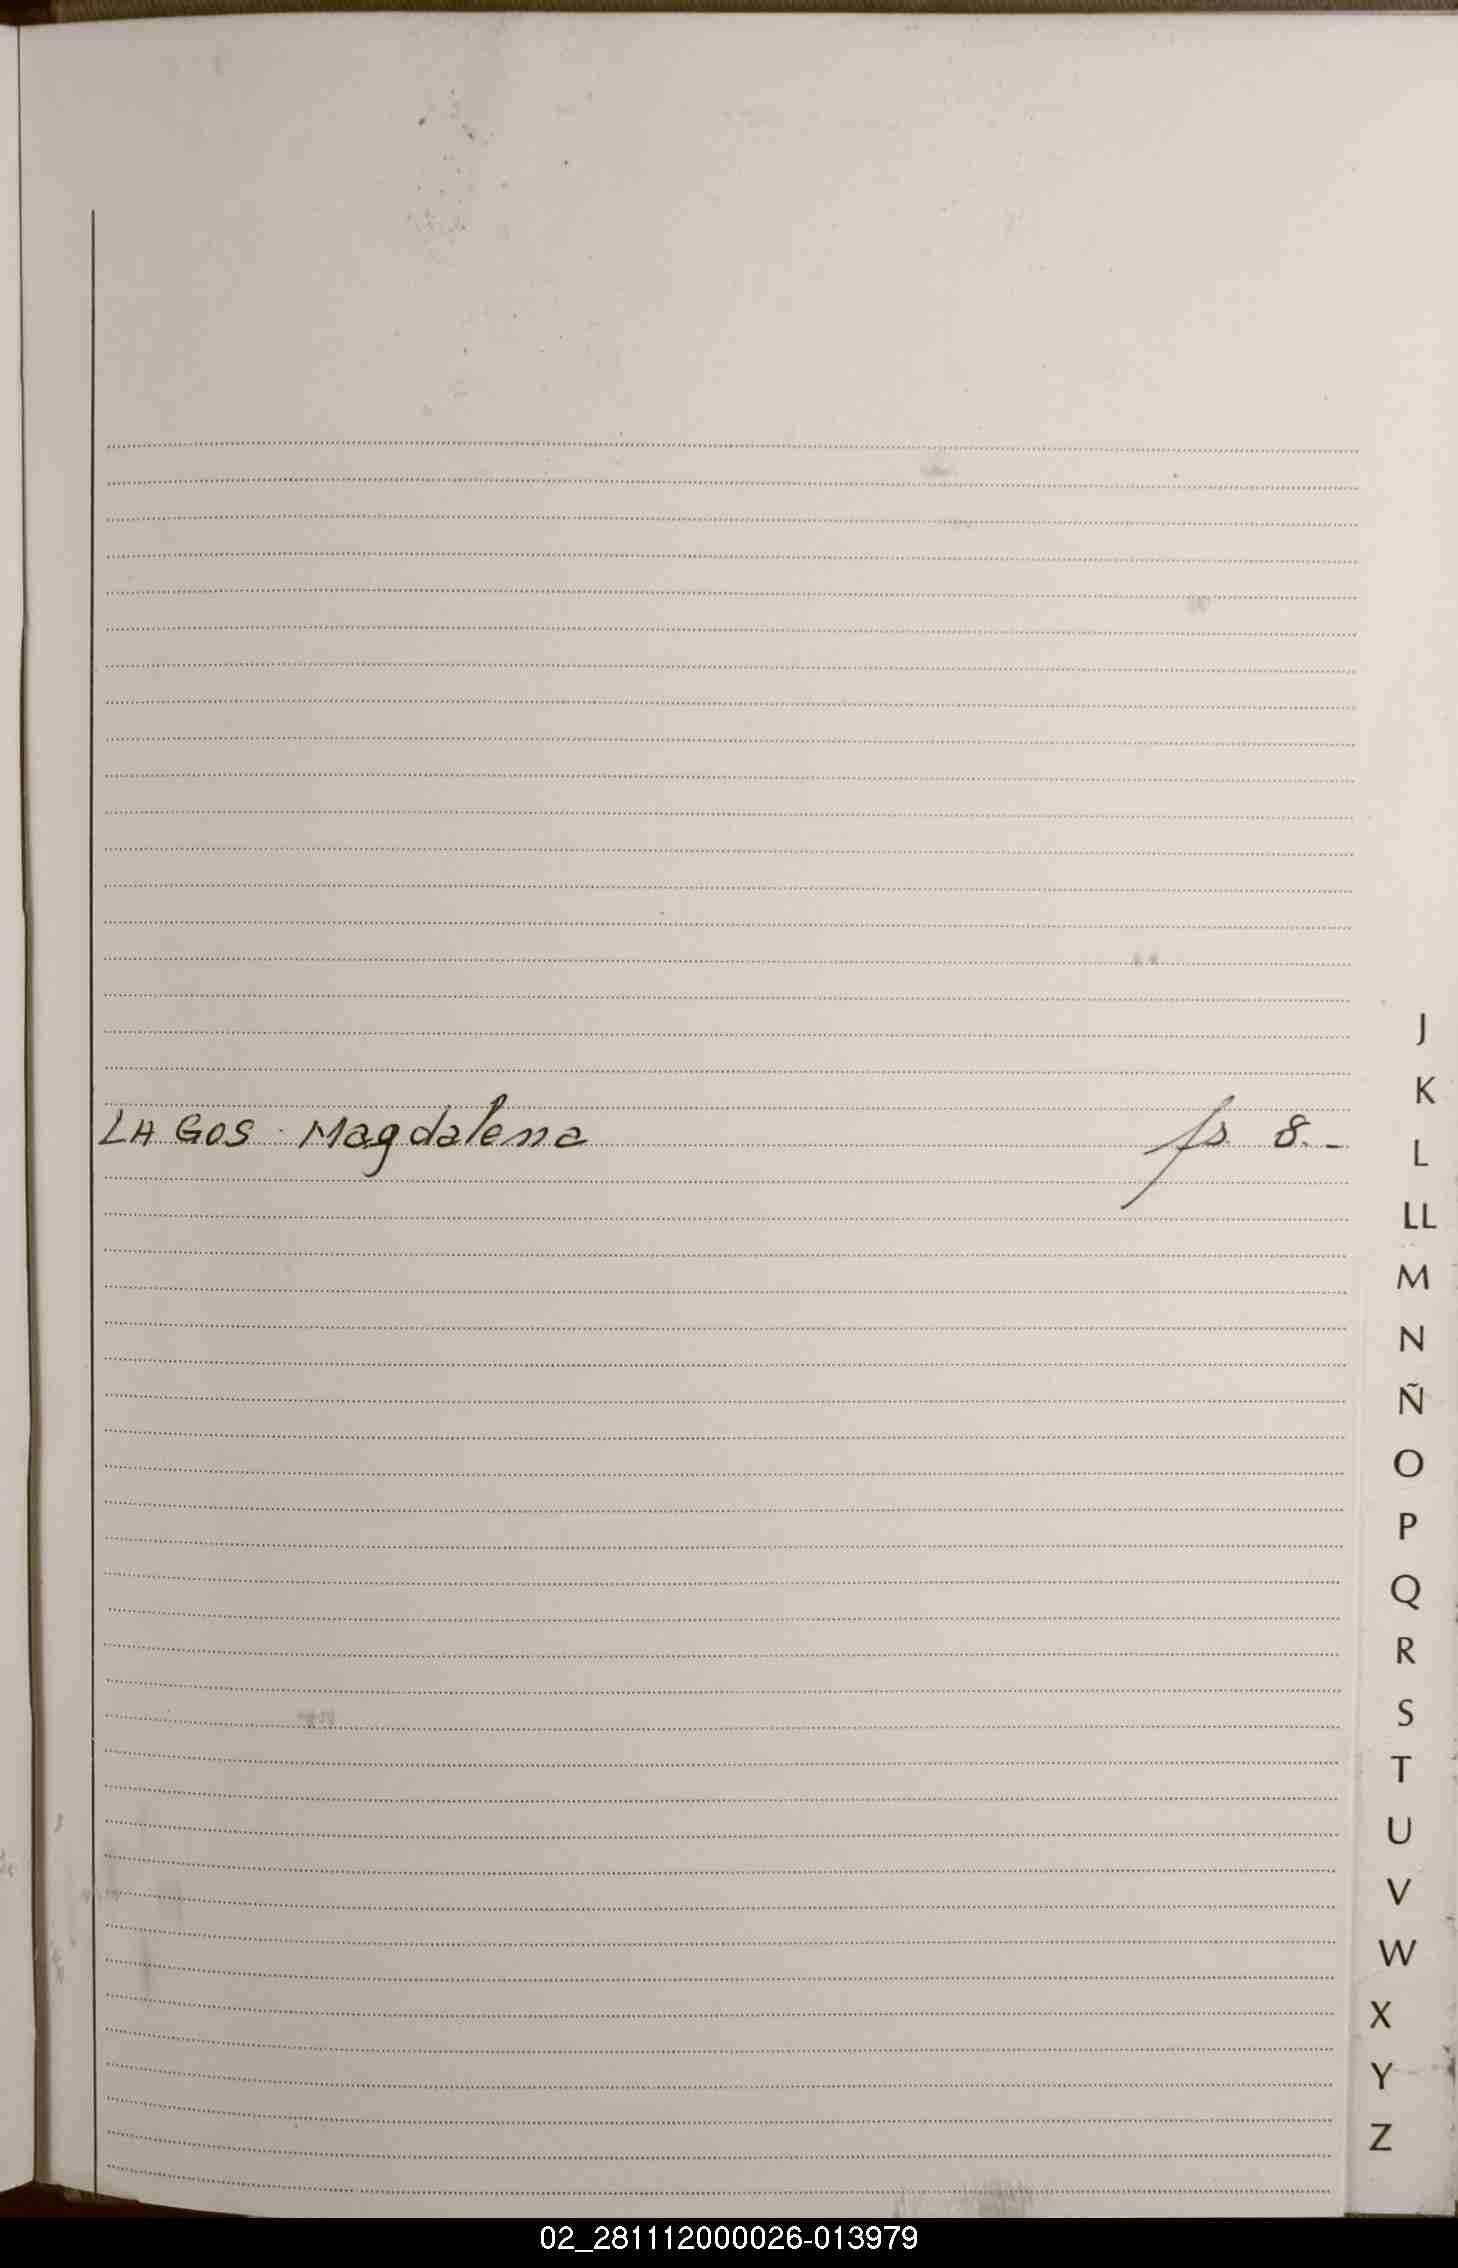 LAGOS Magdalena fs 8.-
J
K
L
LL
M
N
Ñ
O
P
Q
R
S
T
U
V
W
X
Y
Z
02_281112000026-013979